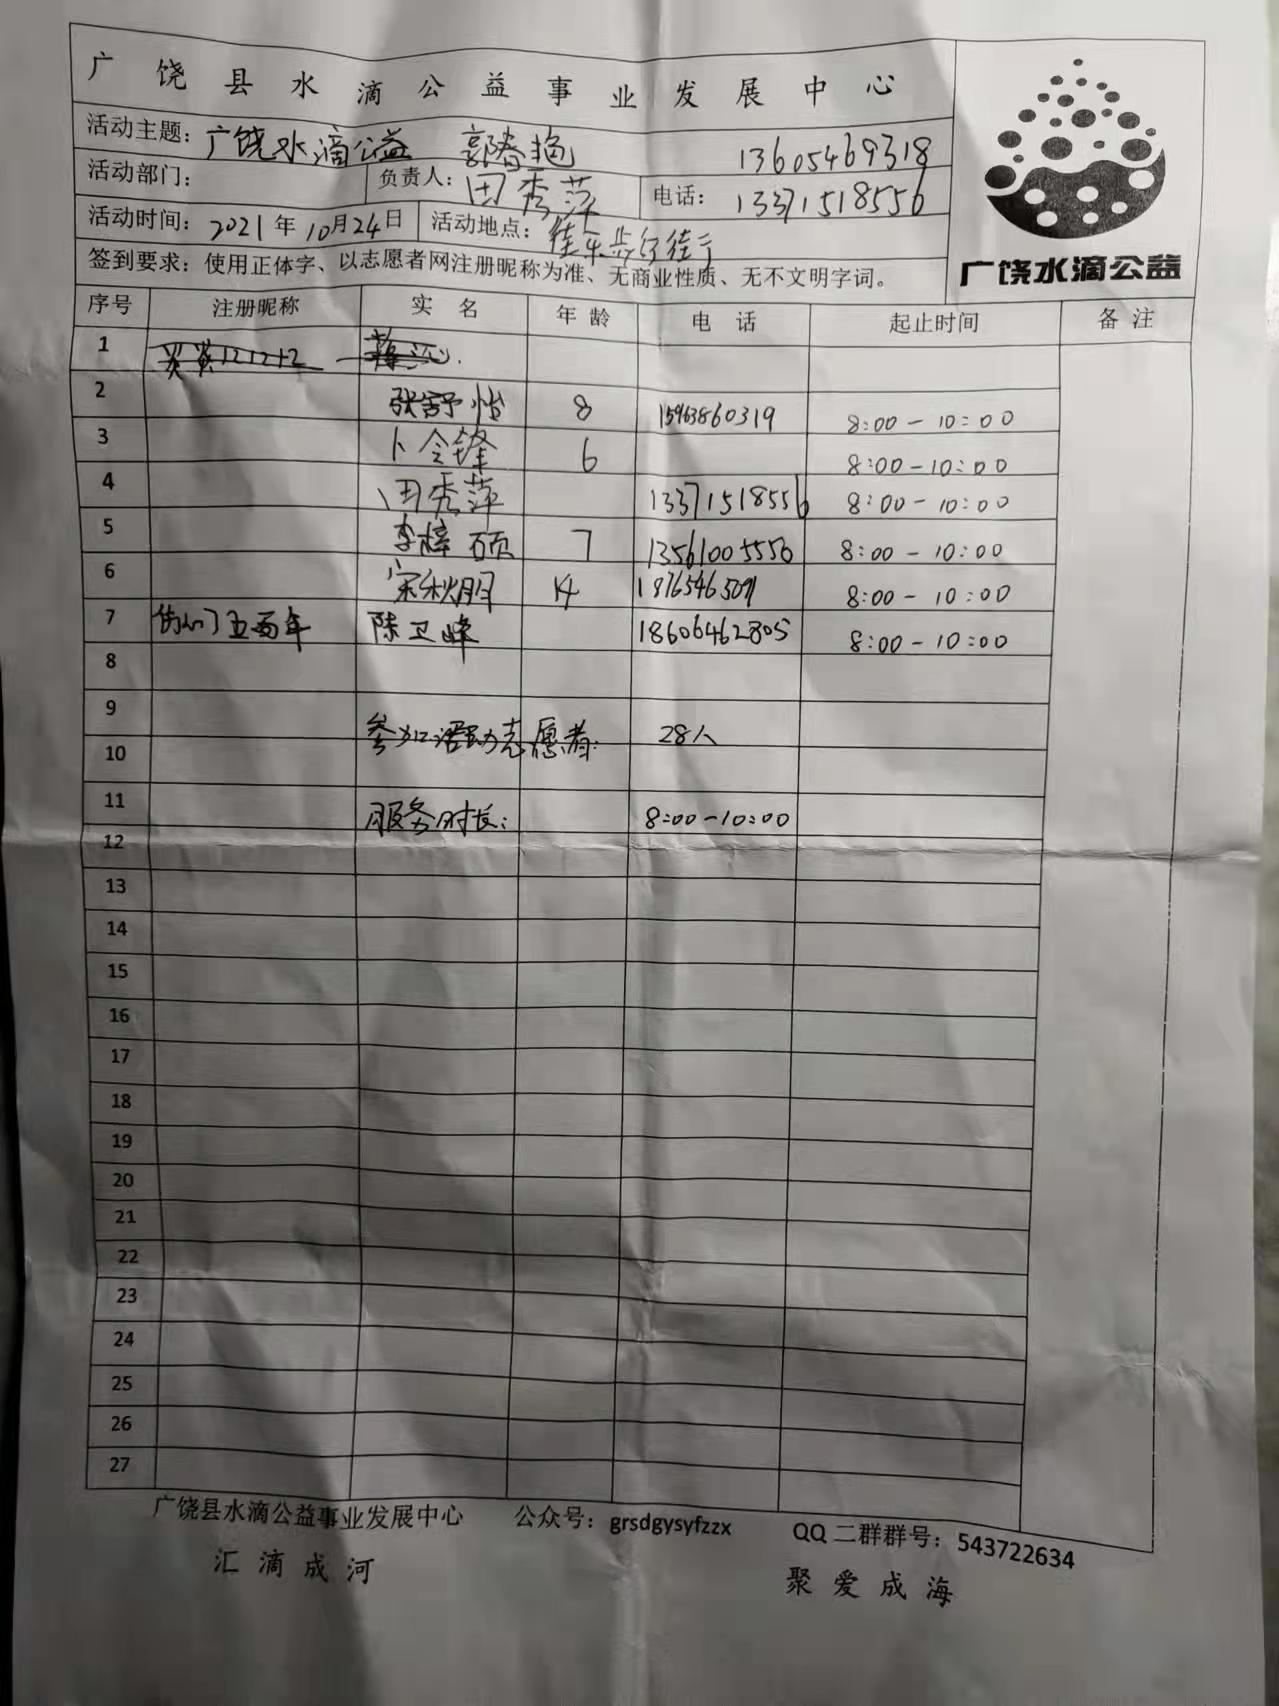 广饶县水滴公益事业发展中心
活动主题：广饶水滴公益 郭 13605469318
活动部门： 负责人：田秀萍 电话：13371518556
活动时间：2021年10月24日 活动地点：佳乐步行街
签到要求：使用正体字、以志愿者网注册昵称为准、无商业性质、无不文明字词。
广饶水滴公益
序号 注册昵称 实 名 年 龄 电 话 起止时间 备 注
1
2 张舒怡 8 15963860319 8:00-10:00
3 卜令锋 6 8:00-10:00
4 田秀萍 13371518556 8:00-10:00
5 李梓硕 7 13561005550 8:00-10:00
6 宋秋月 14 8:00-10:00
7 五百年 陈卫峰 18606462805 8:00-10:00
8
9 参加活动志愿者：28人
10
11 服务时长：8:00-10:00
12
13
14
15
16
17
18
19
20
21
22
23
24
25
26
27
广饶县水滴公益事业发展中心 公众号：grsdgysyfzzx QQ二群群号：543722634
汇滴成河 聚爱成海